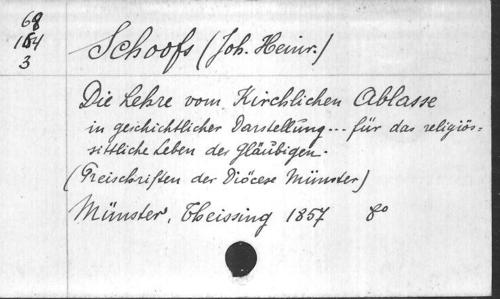 68
164
3
Schoofs (Joh. Heinr.)
Die Lehre vom Kirchlichen Ablasse
in geschichtlicher Darstellung... für das religiös-
sittliche Leben der Gläubigen.
(Preisschriften der Diöcese Münster)
Münster, Theissing 1857 8º